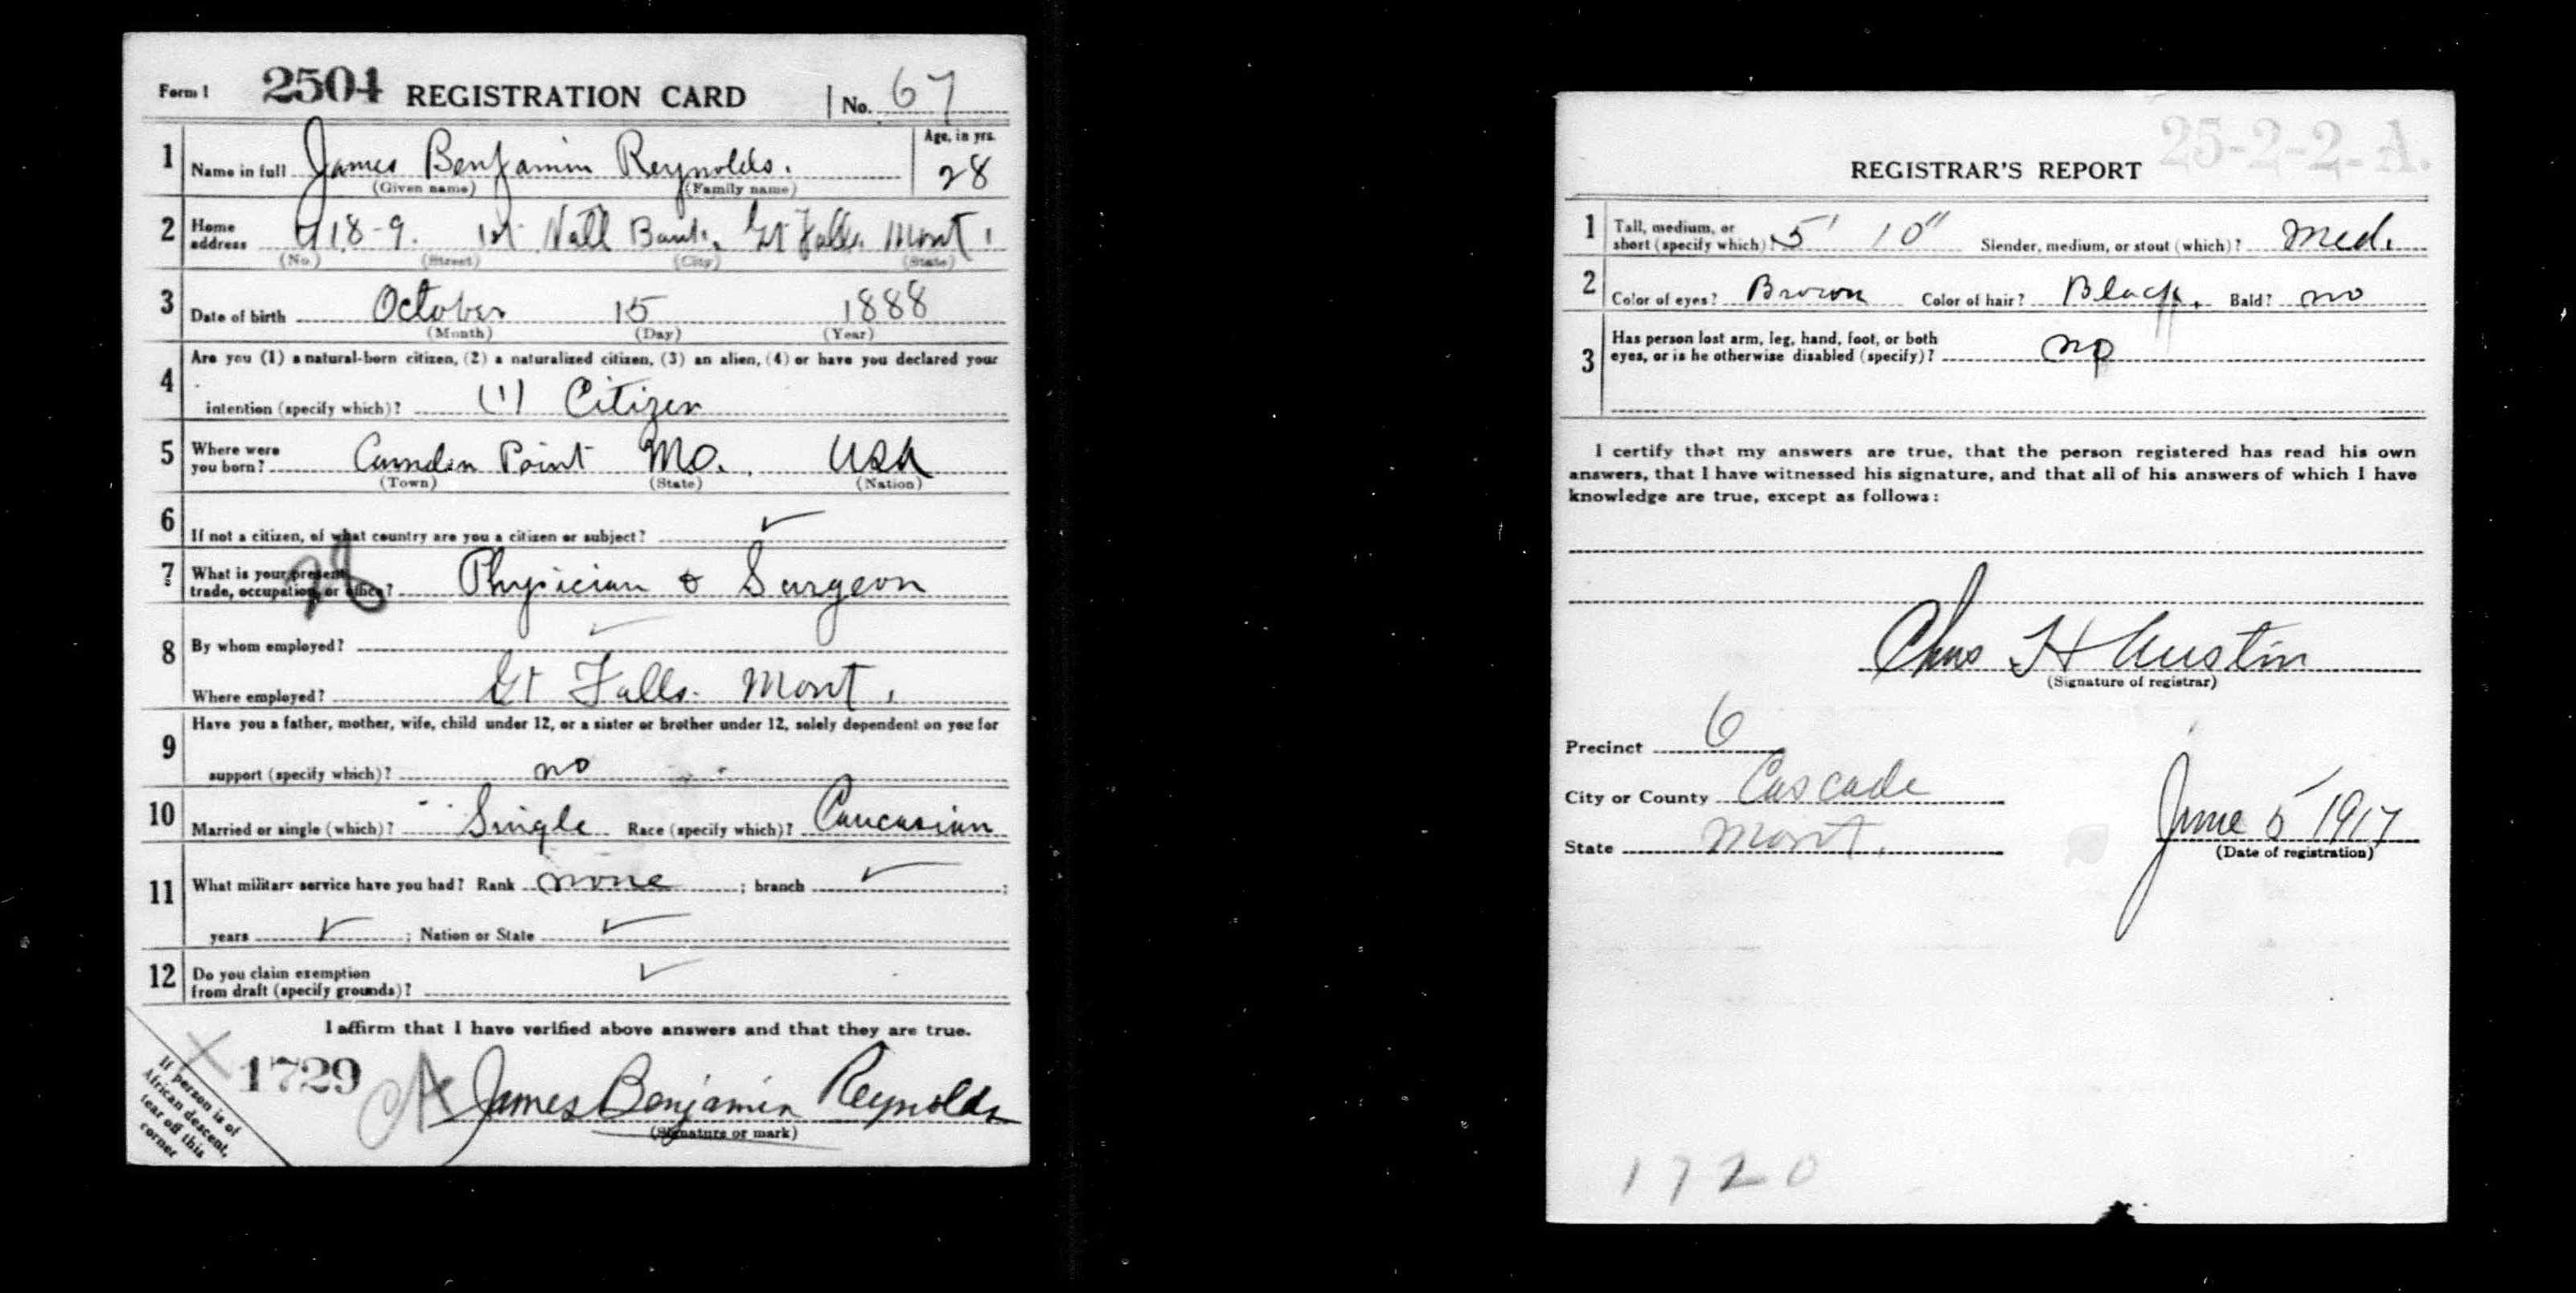 Form 1 2504 REGISTRATION CARD No. 67
1 Name in full James Benjamin Reynolds. Age, in yrs. 28
(Given name) (Family name)
2 Home address 718-9. 1st Natl Bank, Gt Falls, Mont.
(No.) (Street) (City) (State)
3 Date of birth October 15 1888
(Month) (Day) (Year)
4 Are you (1) a natural-born citizen, (2) a naturalized citizen, (3) an alien, (4) or have you declared your
intention (specify which)? (1) Citizen
5 Where were you born? Camden Point Mo. USA
(Town) (State) (Nation)
6 If not a citizen, of what country are you a citizen or subject? ✓
7 What is your present trade, occupation, or office? Physician & Surgeon
8 By whom employed? ✓
Where employed? Gt Falls. Mont.
9 Have you a father, mother, wife, child under 12, or a sister or brother under 12, solely dependent on you for
support (specify which)? no
10 Married or single (which)? Single Race (specify which)? Caucasian
11 What military service have you had? Rank none ; branch ✓ ;
years ✓ ; Nation or State ✓
12 Do you claim exemption from draft (specify grounds)? ✓
I affirm that I have verified above answers and that they are true.
1729 James Benjamin Reynolds
(Signature or mark)
If person is of
African descent,
tear off this
corner
25-2-2-A.
REGISTRAR'S REPORT
1 Tall, medium, or short (specify which)? 5' 10" Slender, medium, or stout (which)? Med.
2 Color of eyes? Brown Color of hair? Black. Bald? no
3 Has person lost arm, leg, hand, foot, or both
eyes, or is he otherwise disabled (specify)? no
I certify that my answers are true, that the person registered has read his own
answers, that I have witnessed his signature, and that all of his answers of which I have
knowledge are true, except as follows:
Chas H Austin
(Signature of registrar)
Precinct 6
City or County Cascade
State Mont.
June 5 1917
(Date of registration)
1720